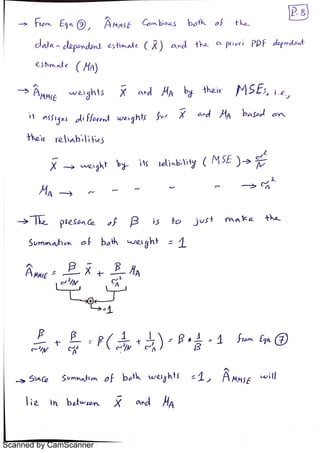 P.8
→ From Eqn ⑨, ÂMMSE Combines both of the
data-dependent estimate (X̄) and the a priori PDF dependent
estimate (μA)
→ ÂMMSE weights X̄ and μA by their MSEs, i.e.,
it assigns different weights for X̄ and μA based on
their reliabilities
X̄ → weight by its reliability (MSE) → σ²/N
μA → ~ ~ ~ ~ → σA²
→ The presence of β is to just make the
summation of both weight = 1
ÂMMSE = β/(σ²/N) X̄ + β/σA² μA
→ = 1
β/(σ²/N) + β/σA² = β (1/(σ²/N) + 1/σA²) = β * 1/β = 1 from Eqn ⑦
→ Since Summation of both weights = 1, ÂMMSE will
lie in between X̄ and μA
Scanned by CamScanner